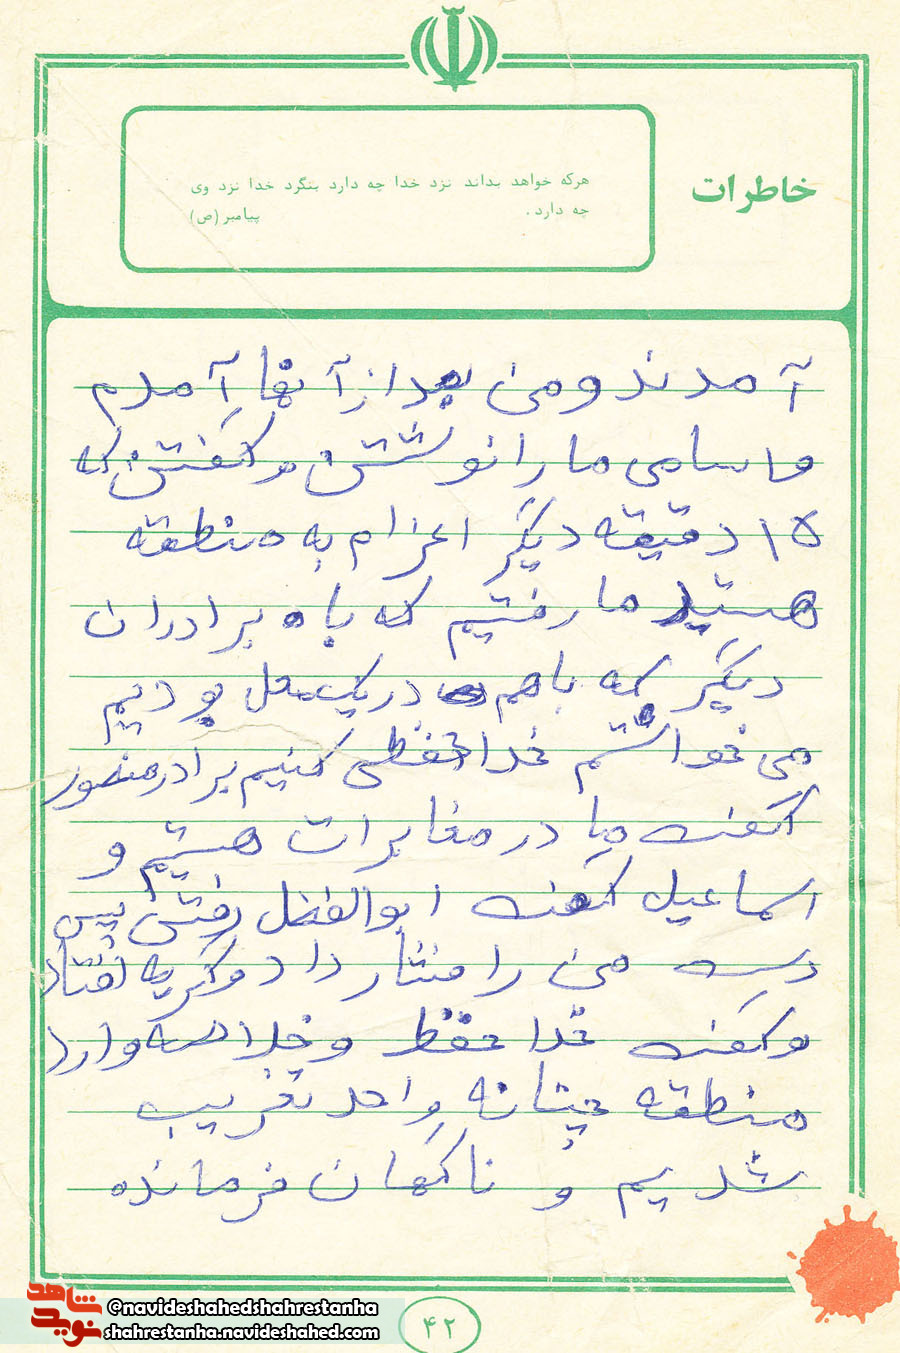 خاطرات
هرکه خواهد بداند نزد خدا چه دارد بنگرد خدا نزد وی
چه دارد.
پیامبر (ص)
آمدند و من بعد از آنها آمدم
و اسامی ما را نوشتن و گفتن که
۱۵ دقیقه دیگر اعزام به منطقه
هستید ما رفتیم که با ه برادران
دیگر که باهم در یک محل بودیم
می خواشتم خداحفظی کنیم برادر منصور
گفت ما در مخابرات هستیم و
اسماعیل گفت ابوالفضل رفتی پس
دست من را فشار داد و گریه افتاد
و گفت خدا حفظ و خلاصه وارد
منطقه چنانه واحد تخریب
شدیم و ناگهان فرمانده
۴۲
شاهد
نوید
@navideshahedshahrestanha
shahrestanha.navideshahed.com